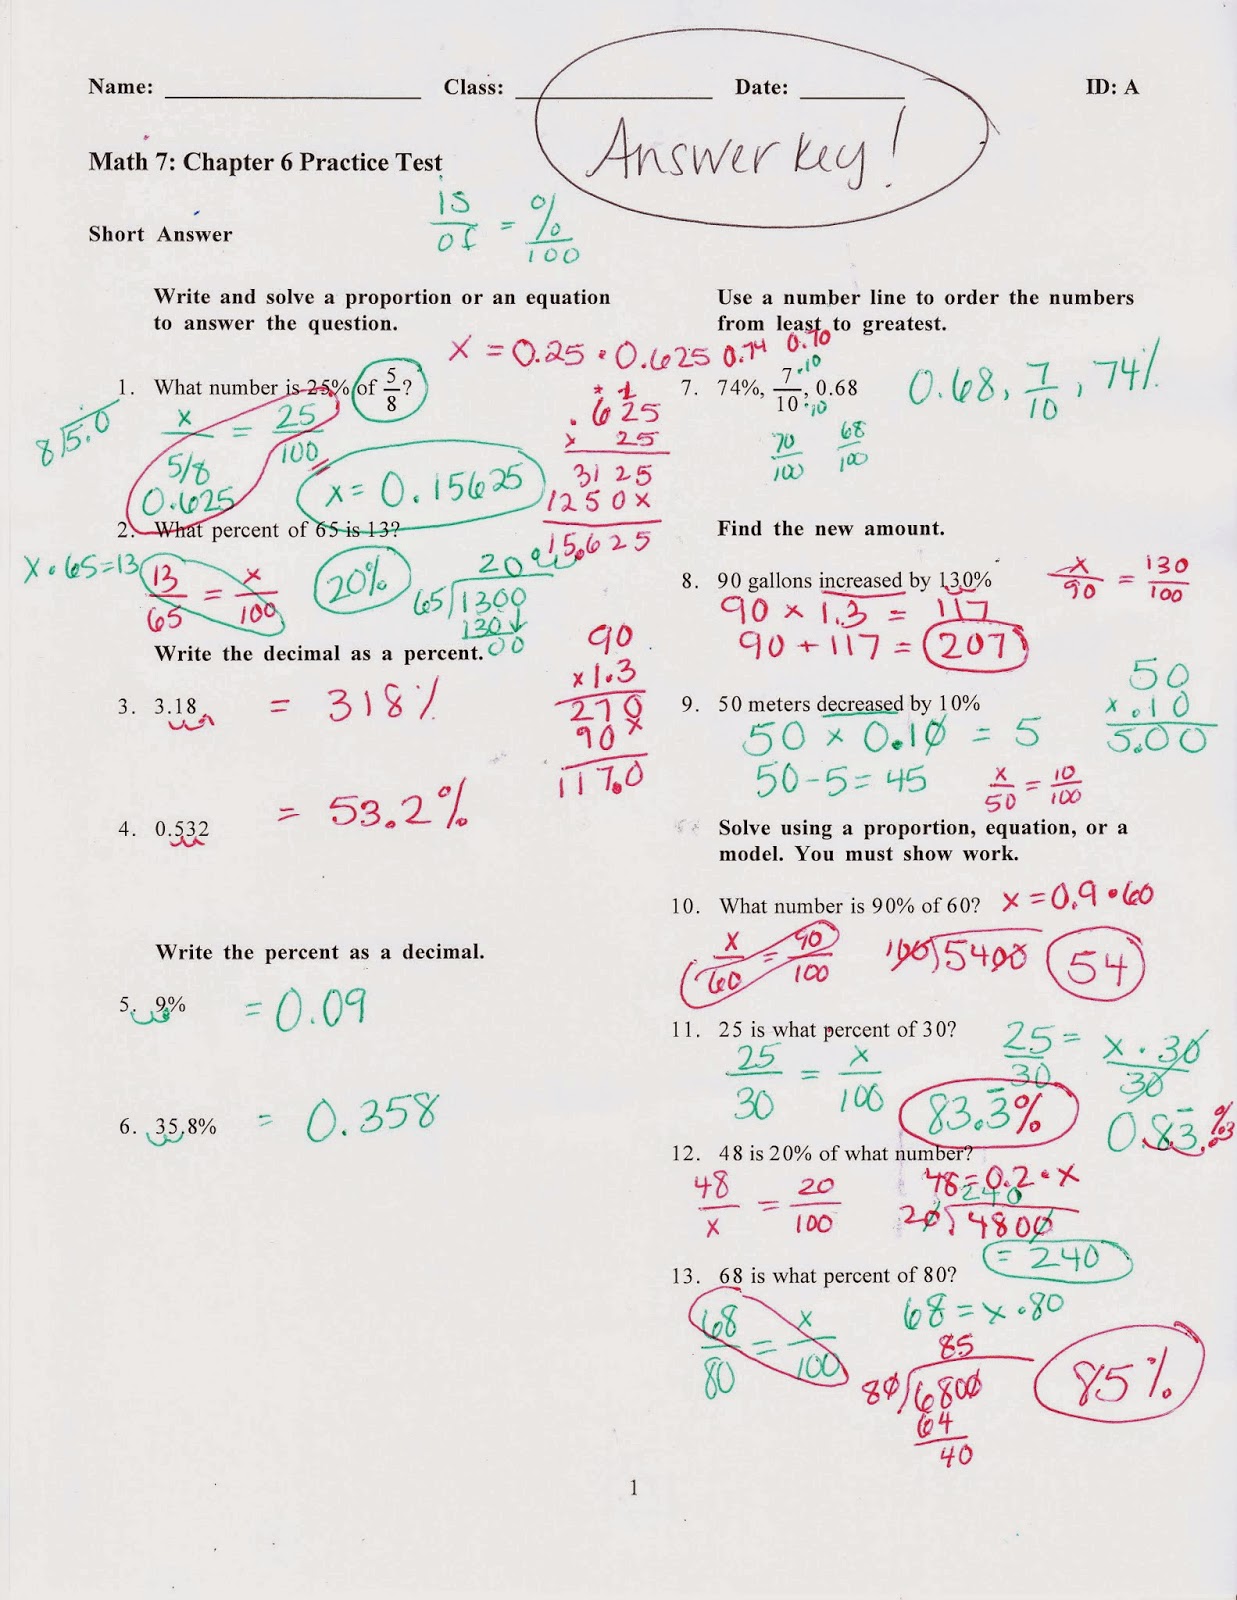 Name: ____ Class: ____ Date: ____ ID: A
Answer key!
Math 7: Chapter 6 Practice Test
is/of = %/100
Short Answer
Write and solve a proportion or an equation
to answer the question.
x = 0.25 • 0.625
1. What number is 25% of 5/8?
8)5.0
x/(5/8) = 25/100
0.625
x = 0.15625
.625
x 25
3125
1250x
15.625
2. What percent of 65 is 13?
x • 65 = 13
13/65 = x/100
20%
20
65)1300
130
00
Write the decimal as a percent.
3. 3.18 = 318%
90
x1.3
270
90x
117.0
4. 0.532 = 53.2%
Write the percent as a decimal.
5. 9% = 0.09
6. 35.8% = 0.358
Use a number line to order the numbers
from least to greatest.
0.74 0.70
7. 74%, 7/10, 0.68
•10
•10
0.68, 7/10, 74%
70/100 68/100
Find the new amount.
8. 90 gallons increased by 130%
x/90 = 130/100
90 x 1.3 = 117
90 + 117 = 207
9. 50 meters decreased by 10%
50
x .10
5.00
50 x 0.10 = 5
50 - 5 = 45
x/50 = 10/100
Solve using a proportion, equation, or a
model. You must show work.
10. What number is 90% of 60? x = 0.9 • 60
x/60 = 90/100
100)5400
54
11. 25 is what percent of 30?
25/30 = x/100
25/30 = x • 30/30
83.3̄%
0.83̄.%
.3
12. 48 is 20% of what number?
48/x = 20/100
48 = 0.2 • x
240
20)4800
= 240
13. 68 is what percent of 80?
68/80 = x/100
68 = x • 80
85
80)6800
64
40
85%
1